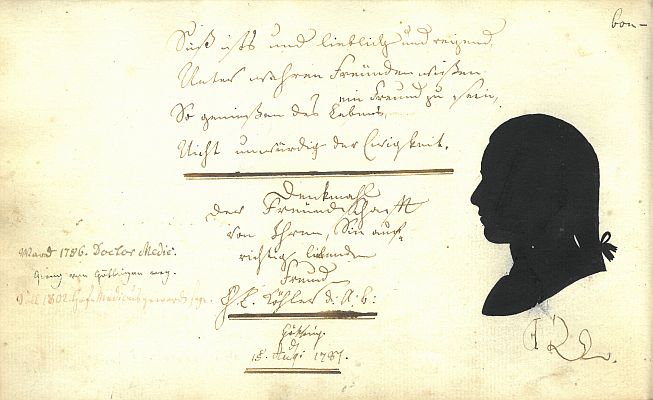 bon-
Süß ists und lieblich und reizend,
Unter wahren Freünden
ein Freund zu sein,
So genießen des Lebens,
Nicht unwürdig der Ewigkeit.
Denkmahl
der Freündschafft
von Ihrem, Sie auf-
richtig liebenden
Freund
Köhler d. A. b:
Götting.
18. Aug: 1781.
Ward 1786. Doctor Medic.
Gieng von Göttingen weg.
1802